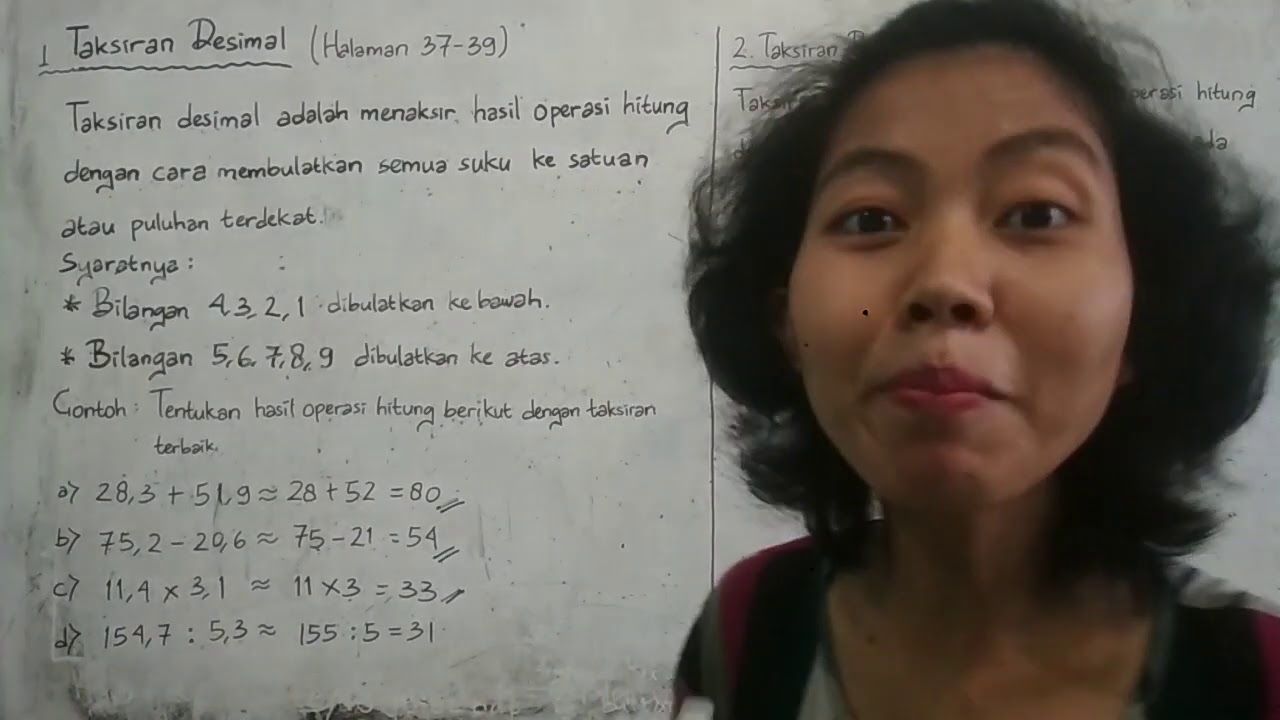 1 Taksiran Desimal (Halaman 37-39)
Taksiran desimal adalah menaksir hasil operasi hitung
dengan cara membulatkan semua suku ke satuan
atau puluhan terdekat.
Syaratnya :
* Bilangan 4,3,2,1 dibulatkan ke bawah.
* Bilangan 5,6,7,8,9 dibulatkan ke atas.
Contoh : Tentukan hasil operasi hitung berikut dengan taksiran
terbaik.
a) 28,3 + 51,9 ≈ 28 + 52 = 80
b) 75,2 - 20,6 ≈ 75 - 21 = 54
c) 11,4 x 3,1 ≈ 11 x 3 = 33
d) 154,7 : 5,3 ≈ 155 : 5 = 31
2. Taksiran
operasi hitung